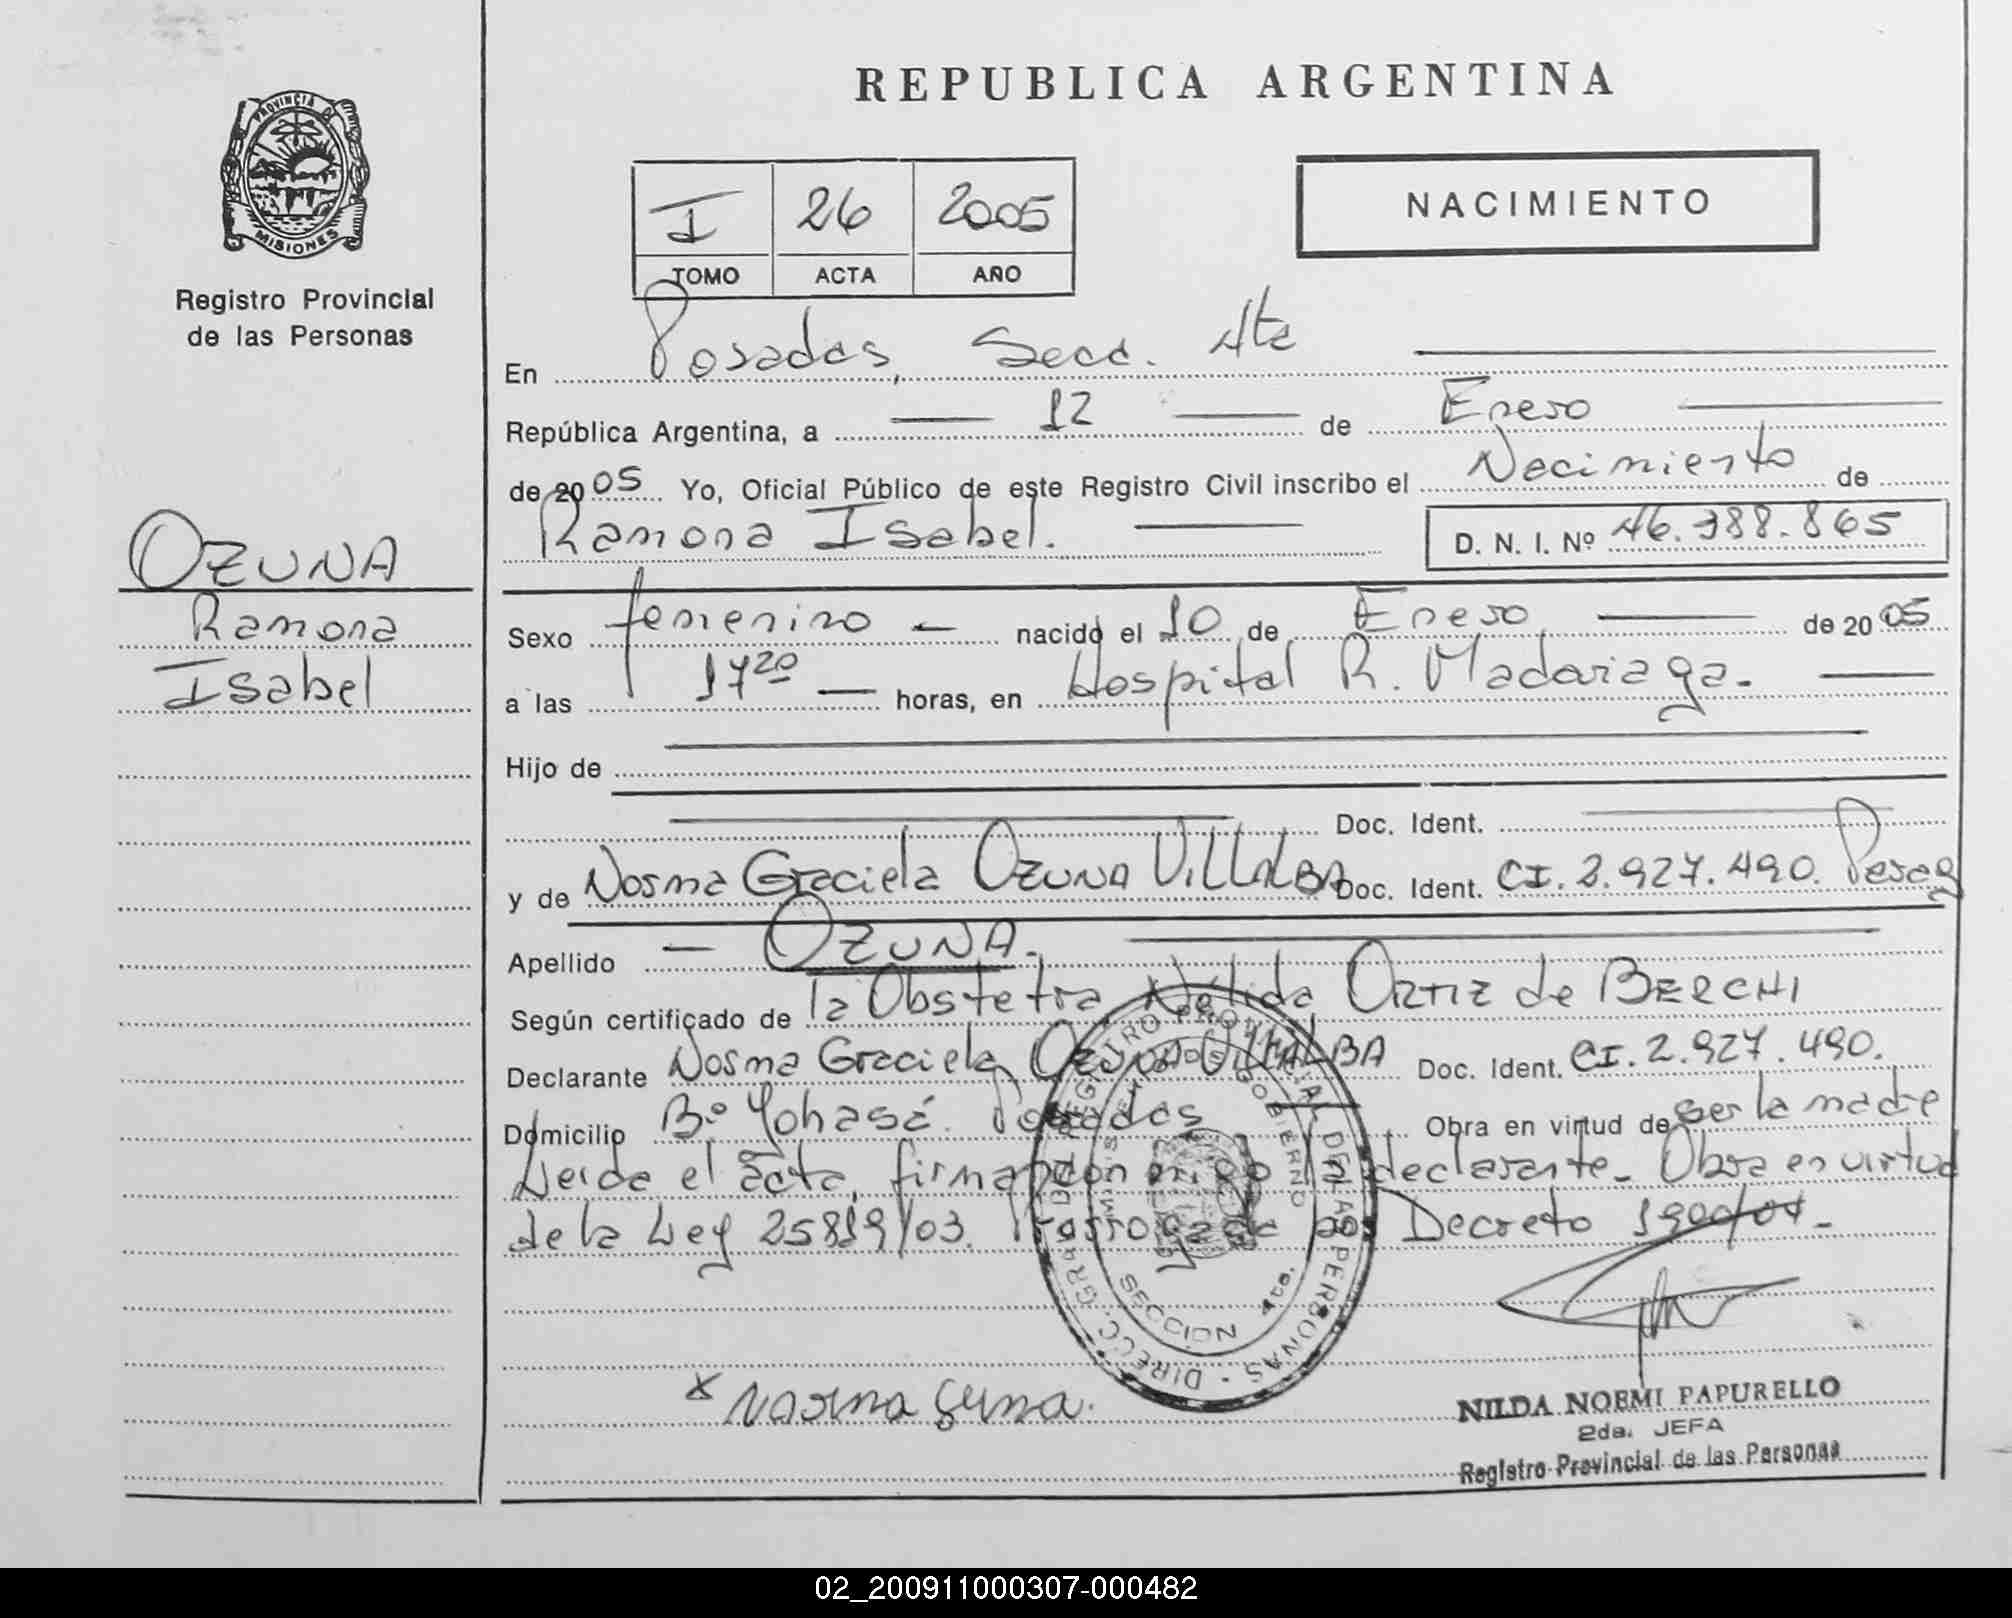 REPUBLICA ARGENTINA
PROVINCIA DE
MISIONES
Registro Provincial
de las Personas
I 26 2005
TOMO ACTA AÑO
NACIMIENTO
OZUNA
Ramona
Isabel
En Posadas, Secc. 4ta
República Argentina, a 12 de Enero
de 2005 Yo, Oficial Público de este Registro Civil inscribo el Nacimiento de
Ramona Isabel. D. N. I. Nº 46.388.865
Sexo femenino nacido el 10 de Enero de 2005
a las 17 20 horas, en Hospital R. Madariaga.
Hijo de
Doc. Ident.
y de Norma Graciela OZUNA VILLALBA Doc. Ident. CI. 2.927.490.
Apellido OZUNA.
Según certificado de la Obstetra Nélida ORTIZ de BERCHI
Declarante Norma Graciela OZUNA VILLALBA Doc. Ident. CI. 2.927.490.
Domicilio Bº Yohasá. Posadas Obra en virtud de ser la madre
Leida el acta, firma conmigo la declarante. Obra en virtud
de la Ley 25819/03. Prorrogada por Decreto
REGISTRO PROVINCIAL DE LAS PERSONAS - DIRECC. GRAL.
GOBIERNO
SECCION 4ta.
x Norma
NILDA NOEMI PAPURELLO
2da. JEFA
Registro Provincial de las Personas
02_200911000307-000482